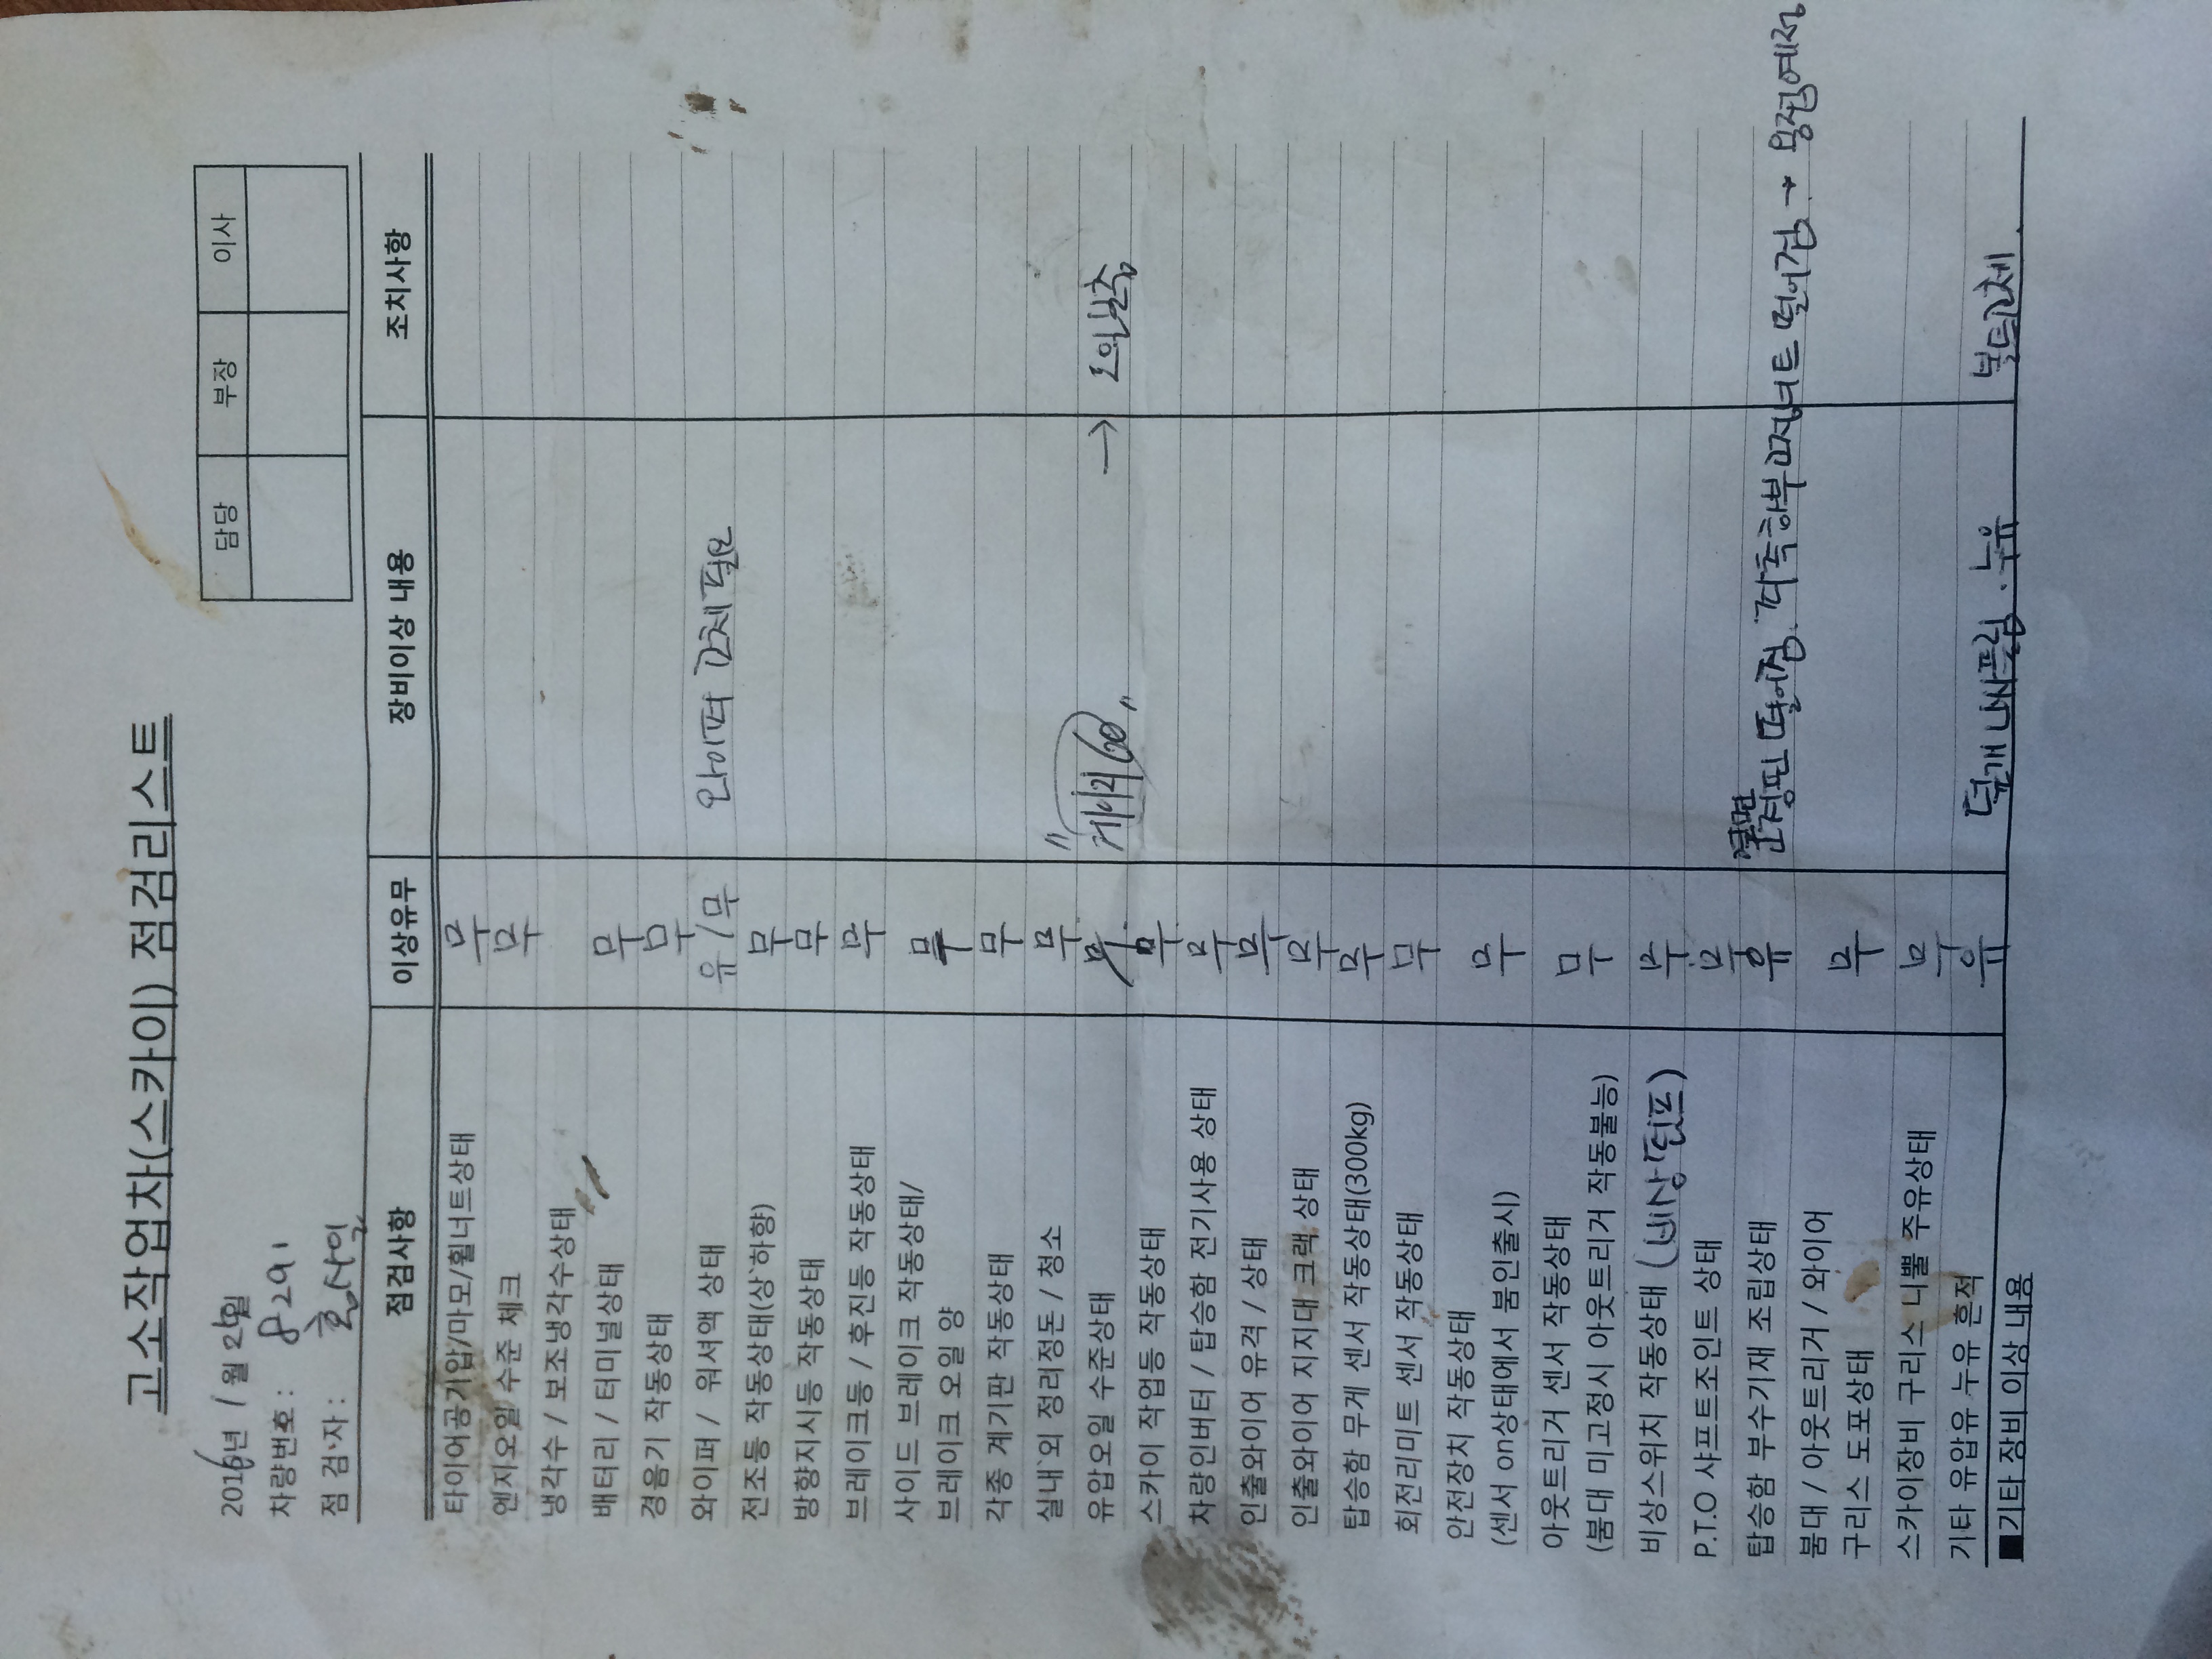 고소작업차(스카이) 점검리스트
담당 부장 이사
2016년 1월 2일
차량번호 : 8291
점 검 자 :
점검사항 이상유무 장비이상 내용 조치사항
타이어공기압/마모/휠너트상태 무
엔지오일 수준 체크 무
냉각수 / 보조냉각수상태
배터리 / 터미널상태 무
경음기 작동상태 무
와이퍼 / 워셔액 상태 유/무 와이퍼 교체필요
전조등 작동상태(상`하향) 무
방향지시등 작동상태 무
브레이크등 / 후진등 작동상태 무
사이드 브레이크 작동상태/
브레이크 오일 양 무
각종 계기판 작동상태 무
실내`외 정리정돈 / 청소 무
유압오일 수준상태 → 오일보충
스카이 작업등 작동상태 무
차량인버터 / 탑승함 전기사용 상태 무
인출와이어 유격 / 상태 무
인출와이어 지지대 크랙 상태 무
탑승함 무게 센서 작동상태(300kg) 무
회전리미트 센서 작동상태 무
안전장치 작동상태
(센서 on상태에서 붐인출시) 무
아웃트리거 센서 작동상태
(붐대 미고정시 아웃트리거 작동불능) 무
비상스위치 작동상태 (비상펌프) 무
P.T.O 샤프트조인트 상태 무
탑승함 부수기재 조립상태 유 고정핀 떨어짐. 좌측하부 고정너트 떨어짐 → 용접예정
붐대 / 아웃트리거 / 와이어
구리스 도포상태 무
스카이장비 구리스 니뿔 주유상태 무
기타 유압유 누유 흔적 유 덮개 나사풀림. 누유 볼트교체.
■기타 장비 이상 내용